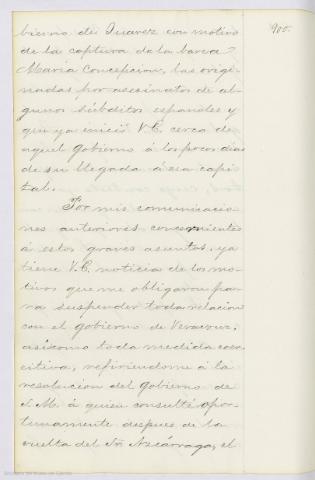 905.
bierno de Juarez con motivo
de la captura de la barca
Maria Concepcion, las origi-
nadas por asesinatos de al-
gunos súbditos españoles y
que ya inició V.E. cerca de
aquel gobierno á los pocos dias
de su llegada á esa capi-
tal.
Por mis comunicacio-
nes anteriores concernientes
á estos graves asuntos, ya
tiene V.E. noticia de los mo-
tivos que me obligaron pa-
ra suspender toda relacion
con el gobierno de Veracruz,
asi como toda medida coer-
citiva, refiriendome á la
resolucion del gobierno de
S.M. á quien consulté opor-
tunamente despues de la
vuelta del Sr. Azcárraga, el